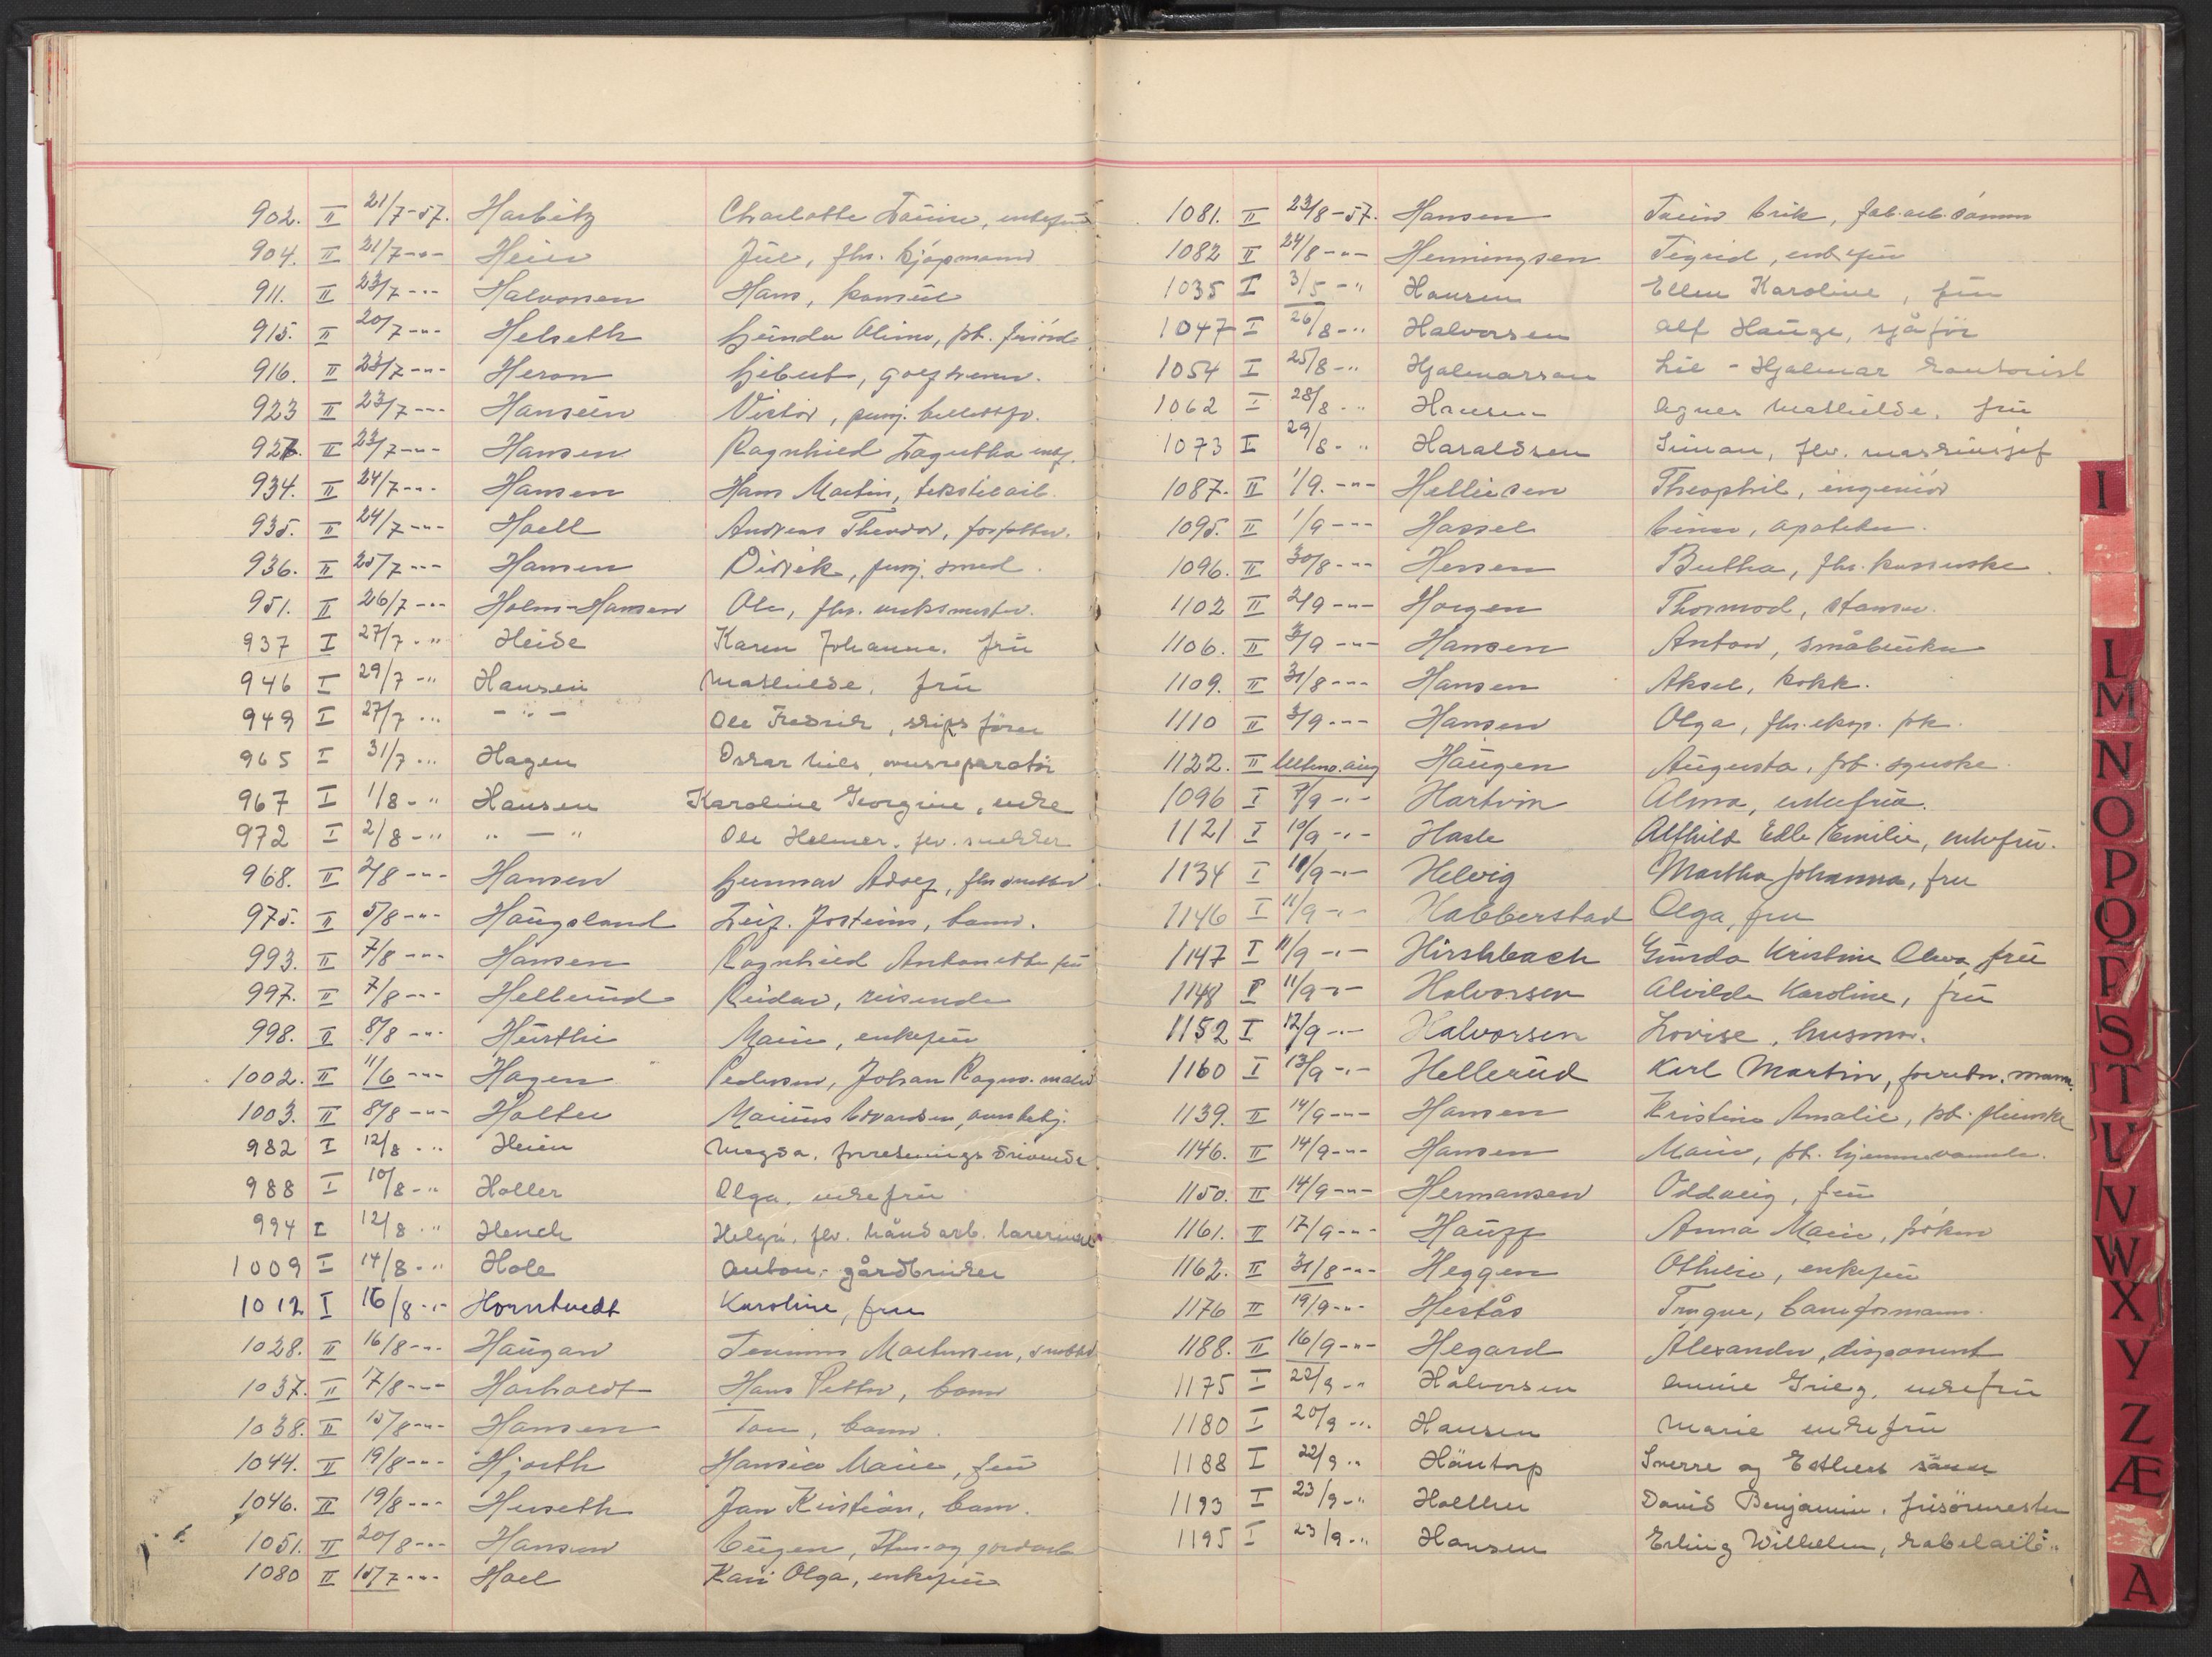 902. II 21/7-57. Harbitz Charlotte Lauise, enkefru
904. II 21/7 -"- Heier Jul, fhv. kjøpmann
911. II 23/7 -"- Halvorsen Hans, konsul
915. II 20/7 -"- Helseth Alima, ph.
916. II 23/7 -"- Heron
923 II 23/7 -"- Hansen Victor, penj.
927. II 23/7 -"- Hansen Ragnhild Lagertha enkf.
934. II 24/7 -"- Hansen Hans Martin, tekstilarb.
935. II 24/7 -"- Hoell Andreas Theodor, forfatter.
936. II 25/7 -"- Hansen Didrik, penj. smed.
951. II 26/7 -"- Holm-Hansen Ole, fhv. verksmester.
937 I 27/7 -" Heide Karen Johanne. frü
946 I 29/7 -" Hansen Mathilde, frü
949 I 27/7 -" - " - Ole Fredrik, skipsfører
965 I 31/7 -" Hagen Oskar Nils,
967 I 1/8 -" Hansen Karoline Georgine, enke
972 I 2/8 -" " - " Ole Helmer. fhv. snekker
968. II 2/8 -"- Hansen Gunnar Adolf, fhv snekker
975. II 5/8 -"- Haugsland Leif. Jostein, barn.
993. II 7/8 -"- Hansen Ragnhild Antonette frü
997. II 7/8 -"- Hellerud Reidar, reisende
998. II 8/8 -"- Hürthi Marie, enkefrü
1002. II 11/6 -"- Hagen Pedersen, Johan Ragnv. maler
1003. II 8/8 -"- Holter Marius Edvardsen,
982 I 12/8 -" Heim Magda. forretningsdrivende
988 I 10/8 -" Holler Olga, enkefrü
994 I 12/8 -" Hench Helga, fhv. håndarb. lærerinne
1009 I 14/8 -" Hole Anton, gårdbruker
1012 I 16/8 -"- Horntvedt Karoline, fru
1028. II 16/8 -"- Haugan Mortensen, snekker
1037. II 17/8 -"- Harholdt Hans Petter, barn
1038. II 15/8 -"- Hansen Tom, barn.
1044. II 19/8 -"- Hjorth Hansia Marie, frü
1046. II 19/8 -"- Huseth Jan Kristian, barn.
1051. II 20/8 -"- Hansen Eugen,
1080 II 15/7 -"- Hoel Kari Olga, enkefrü
1081. II 23/8-57. Hansen Erik, fab.arb. sønn
1082 II 24/8 -"- Henningsen Sigrid, enkefrü
1035 I 3/5 -" Hansen Ellen Karoline, frü
1047 I 26/8 -" Halvorsen Alf Hauge, sjåfør
1054 I 25/8 -" Hjalmarsson Lie-Hjalmar kontorist
1062 I 28/8 -" Hansen Agnes Mathilde, frü
1073 I 29/8 -" Haraldsen Simon, fhv. maskinsjef
1087. II 1/9. -"- Helliesen Theophil, ingeniör
1095. II 1/9 -"- Hassel Einar, apoteker.
1096. II 30/8 -"- Hessen Bertha, fhv.
1102 II 2/9 -"- Horgen Thormod,
1106. II 3/9 -"- Hansen Anton, småbruker
1109. II 31/8 -"- Hansen Aksel, kokk.
1110 II 3/9 -"- Hansen Olga, fhv. eksp. frk.
1122. II aug Haugen Augusta, frk. syerske
1096 I 7/9 -"- Hartvin Alma, enkefrue.
1121 I 10/9 -"- Hasle Alfhild Edle Emilie, enkefru.
1134 I 10/9 -"- Helvig Martha Johanna, fru
1146 I 11/9 -"- Habberstad Olga, fru
1147 I 11/9 -"- Hirshbach Gunda Kristine Olava, frü
1148 I 11/9 -"- Halvorsen Alvilde Karoline, frü
1152 I 12/9 -"- Halvorsen Lovise, husmor.
1160 I 13/9 -"- Hellerud Karl Martin, forretn. mann.
1139. II 14/9 -"- Hansen Kristine Amalie, frk.
1146. II 14/9 -"- Hansen Marie, frk. hjemmeværende.
1150. II 14/9 -"- Hermansen Oddveig, frü
1161. II 17/9 -"- Hauff Anna Marie, frøken
1162. II 31/8 -"- Heggen Othilie, enkefrü
1176 II 19/9 -"- Hestås Trygve, baneformann.
1188. II 16/9 -"- Hegard Alexander, disponent
1175 I 22/9 -" Halvorsen Annie Grieg, enkefrü
1180 I 20/9 -" Hansen Marie enkefrü
1188 I 22/9 -" Häntorp Sverre og Esthers sønn
1193 I 23/9 -" Holther David Benjamin, frisörmester
1195 I 23/9 -" Hansen Erling Wilhelm, kabelarb.
I
L
M
N
O
P
Q
R
S
T
U
V
W
X
Y
Z
Æ
A